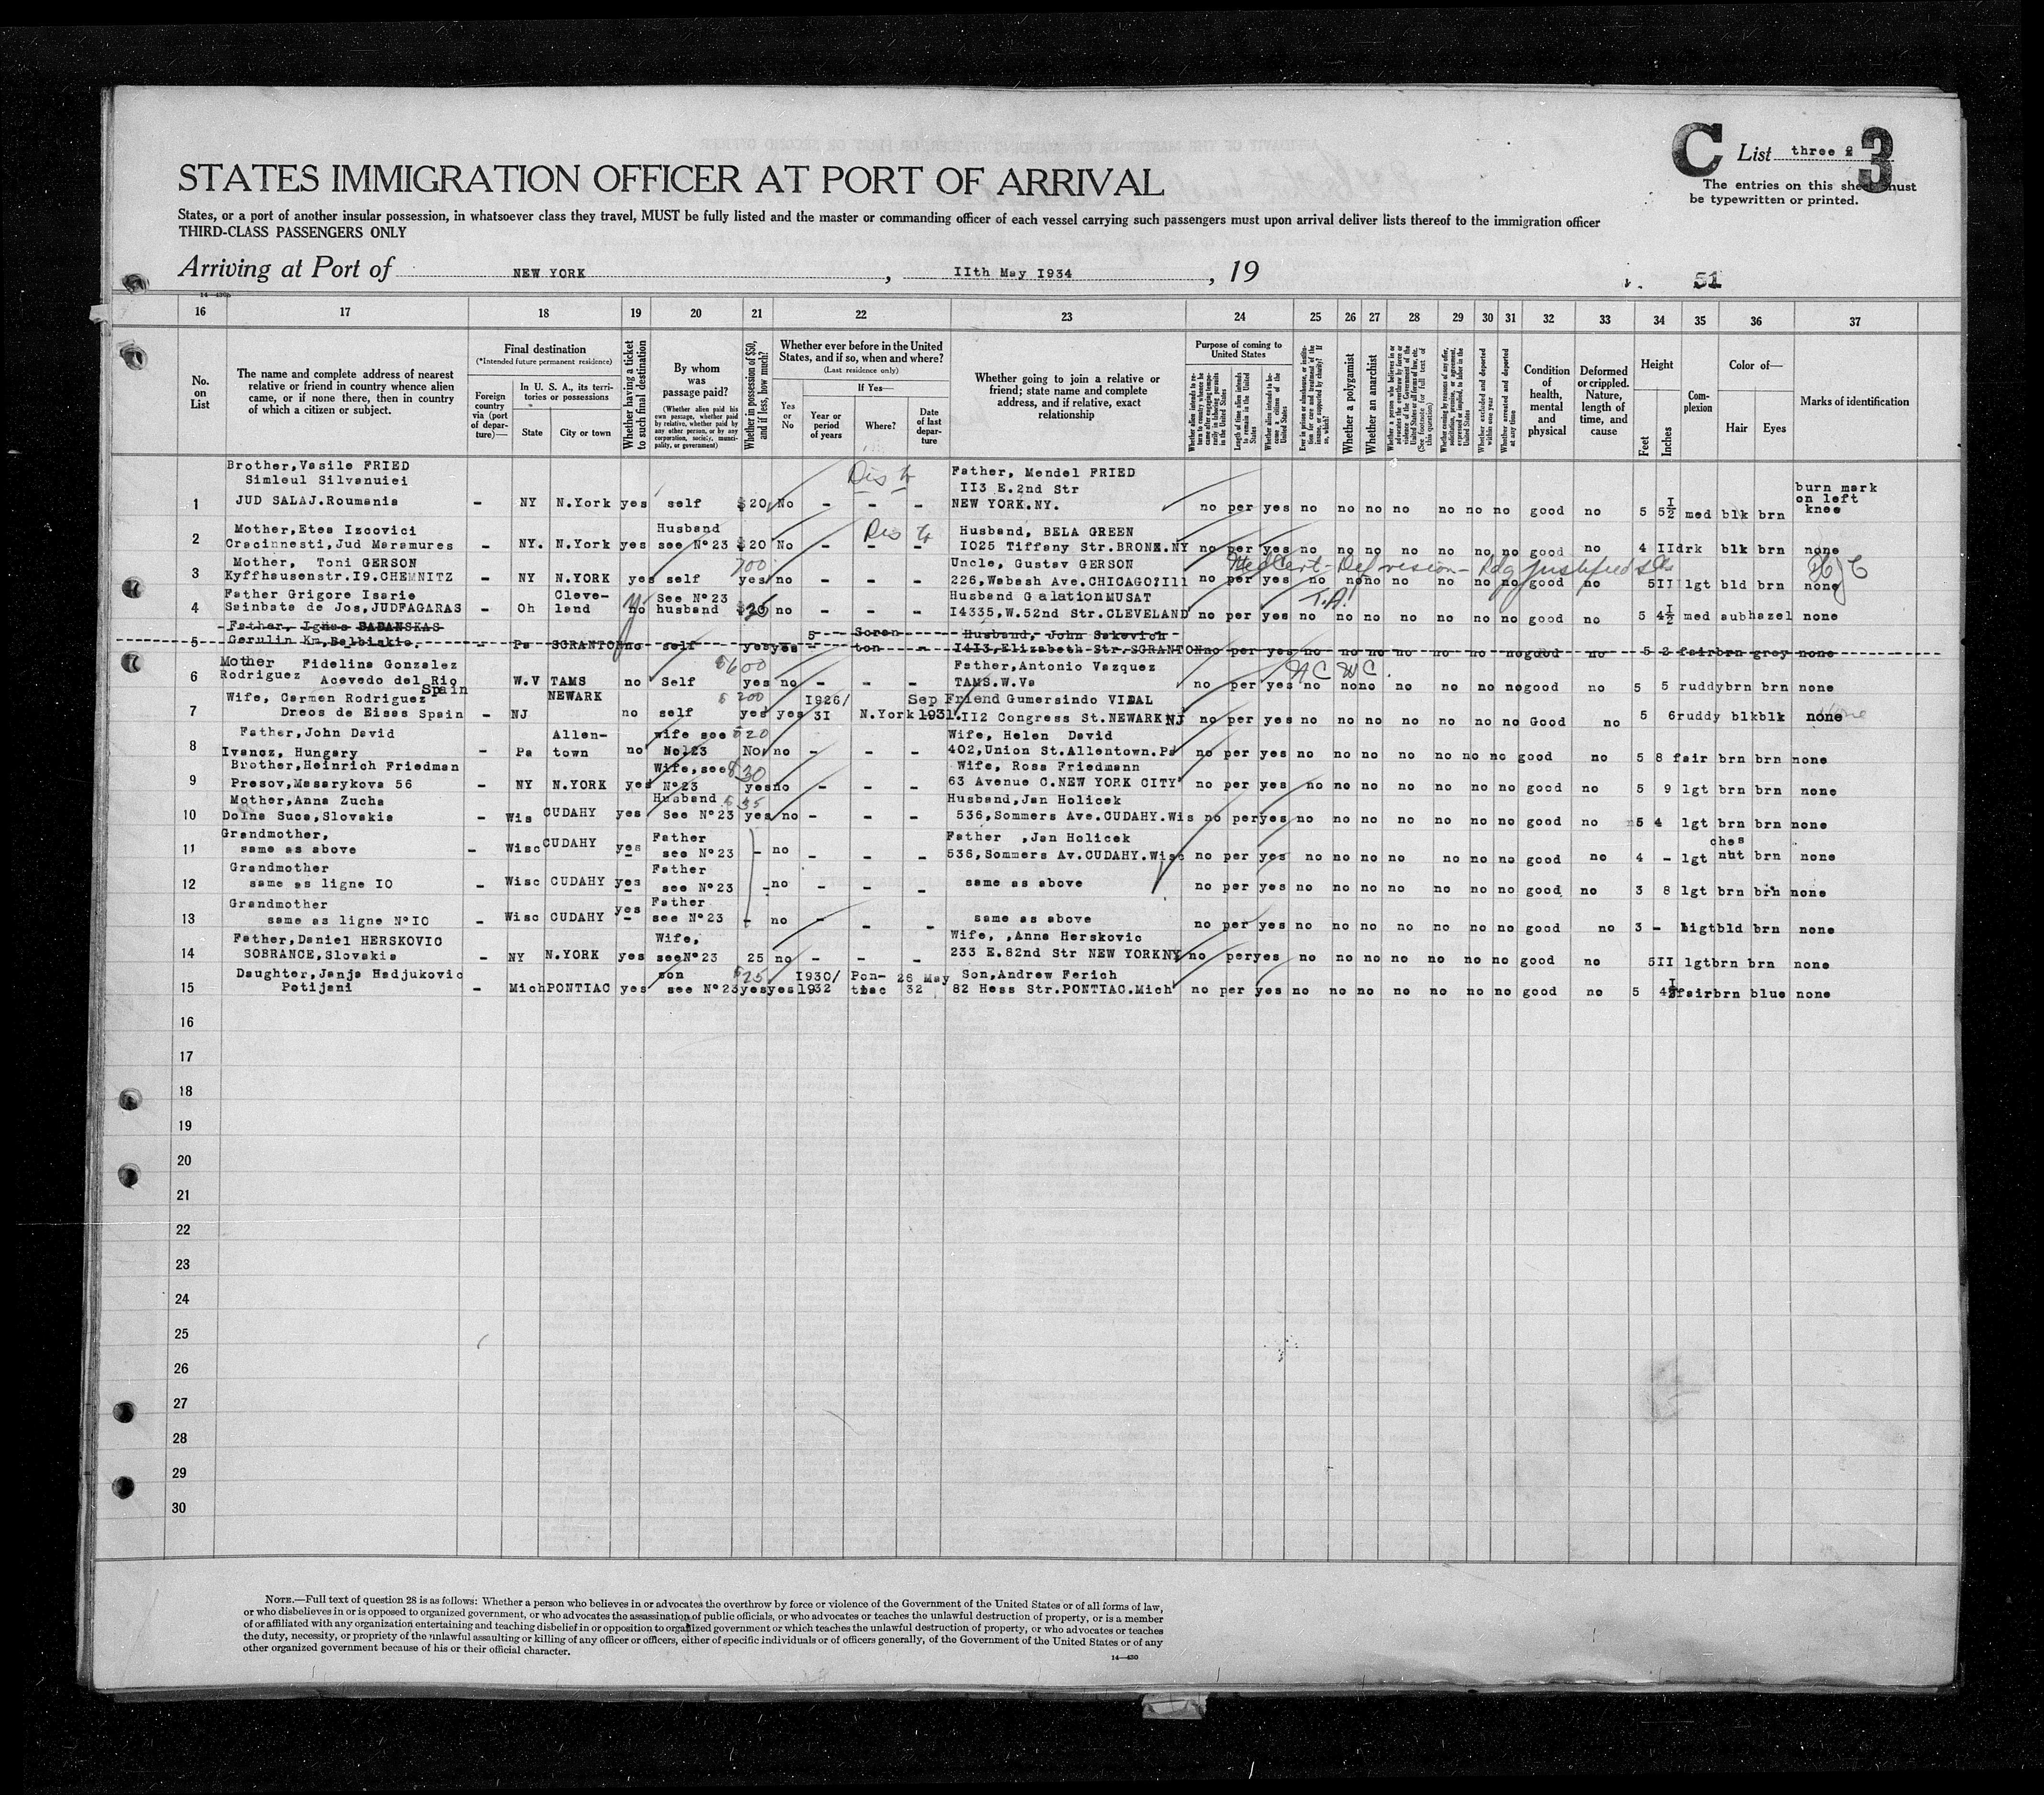 C List three 3
The entries on this sheet must
be typewritten or printed.
STATES IMMIGRATION OFFICER AT PORT OF ARRIVAL
States, or a port of another insular possession, in whatsoever class they travel, MUST be fully listed and the master or commanding officer of each vessel carrying such passengers must upon arrival deliver lists thereof to the immigration officer
THIRD-CLASS PASSENGERS ONLY
Arriving at Port of NEW YORK, IIth May I934, 19
51
14—430b
16 17 18 19 20 21 22 23 24 25 26 27 28 29 30 31 32 33 34 35 36 37
No. on List
The name and complete address of nearest relative or friend in country whence alien came, or if none there, then in country of which a citizen or subject.
Final destination
(*Intended future permanent residence)
Foreign country via (port of departure)—
In U. S. A., its territories or possessions
State City or town
Whether having a ticket to such final destination
By whom was passage paid?
(Whether alien paid his own passage, whether paid by relative, whether paid by any other person, or by any corporation, society, municipality, or government)
Whether in possession of $50, and if less, how much?
Whether ever before in the United States, and if so, when and where?
(Last residence only)
Yes or No
If Yes—
Year or period of years Where? Date of last departure
Whether going to join a relative or friend; state name and complete address, and if relative, exact relationship
Purpose of coming to United States
Whether alien intends to return to country whence he came after engaging temporarily in laboring pursuits in the United States
Length of time alien intends to remain in the United States
Whether alien intends to become a citizen of the United States
Ever in prison or almshouse, or institution for care and treatment of the insane, or supported by charity? If so, which?
Whether a polygamist
Whether an anarchist
Whether a person who believes in or advocates the overthrow by force or violence of the Government of the United States or all forms of law, etc. (See footnote for full text of this question)
Whether coming by reason of any offer, solicitation, promise, or agreement, expressed or implied, to labor in the United States
Whether excluded and deported within one year
Whether arrested and deported at any time
Condition of health, mental and physical
Deformed or crippled. Nature, length of time, and cause
Height
Feet Inches
Complexion
Color of—
Hair Eyes
Marks of identification
Brother,Vasile FRIED Father, Mendel FRIED
Simleul Silvanuiei II3 E.2nd Str burn mark on left knee
1 JUD SALAJ.Roumania - NY N.York yes self $20 No - - - NEW YORK.NY. no per yes no no no no no no no good no 5 5½ med blk brn
Mother,Etea Izcovici Husband Husband, BELA GREEN
2 Cracinnesti,Jud Maramures - NY. N.York yes see N°23 $20 No - - - I025 Tiffany Str.BRONX.NY no per yes no no no no no no no good no 4 II drk blk brn none
Mother, Toni GERSON 700 Uncle, Gustav GERSON Med Cert - Def vision -
3 Kyffhausenstr.I9.CHEMNITZ - NY N.YORK yes self yes no - - - 226,Wabash Ave.CHICAGO?Ill no per yes no no no no no no no good no 5 II lgt bld brn none
Father Grigore Isarie Cleve- See N°23 Husband Galation MUSAT T.A.
4 Seinbate de Jos,JUDFAGARAS - Oh land no husband $20 no - - - I4335,W.52nd Str.CLEVELAND no per yes no no no no no no no good no 5 4½ med aub hazel none
Father, Ignas BADANSKAS 5 Scran- Husband, John Sakevich
5 Gerulin Km,Balbiskis. - Pa SCRANTON no self yes yes - ton - I4I3,Elizabeth Str.SCRANTON no per yes no no no no no no no good no 5 2 fair brn grey none
Mother Fidelina Gonzalez $600 Father,Antonio Vazquez
6 Rodriguez Acevedo del Rio Spain W.V TAMS no Self yes no - - - TAMS.W.Va no per yes no no no no no no no good no 5 5 ruddy brn brn none
Wife, Carmen Rodriguez NEWARK $200 I926/ Sep Friend Gumersindo VIDAL
7 Dreos de Eises Spain - NJ no self yes yes 3I N.York 1931. II2 Congress St.NEWARK NJ no per yes no no no no no no no Good no 5 6 ruddy blk blk none
Father,John David Allen- wife see $20 Wife, Helen David
8 Ivancz, Hungary - Pa town no No23 No no - - - 402,Union St.Allentown.Pa no per yes no no no no no no no good no 5 8 fair brn brn none
Brother,Heinrich Friedman Wife,see $30 Wife, Rosa Friedmann
9 Presov,Masarykova 56 - NY N.YORK yes N°23 yes no - - - 63 Avenue C.NEW YORK CITY no per yes no no no no no no no good no 5 9 lgt brn brn none
Mother,Anna Zucha Husband $35 Husband,Jan Holicek
10 Dolna Suca,Slovakia - Wis CUDAHY yes See N°23 yes no - - - 536,Sommers Ave.CUDAHY.Wis no per yes no no no no no no no good no 5 4 lgt brn brn none
Grandmother, Father Father ,Jan Holicek ches
11 same as above - Wisc CUDAHY yes see N°23 - no - - - 536,Sommers Av.CUDAHY.Wisc no per yes no no no no no no no good no 4 - lgt nut brn none
Grandmother Father
12 same as ligne IO - Wisc CUDAHY yes see N°23 - no - - - same as above no per yes no no no no no no no good no 3 8 lgt brn brn none
Grandmother Father
13 same as ligne N°IO - Wisc CUDAHY yes see N°23 - no - - - same as above no per yes no no no no no no no good no 3 - ligt bld brn none
Father,Daniel HERSKOVIC Wife, Wife, ,Anna Herskovic
14 SOBRANCE,Slovakia - NY N.YORK yes seeN°23 25 no - - - 233 E.82nd Str NEW YORK NY no per yes no no no no no no no good no 5 II lgt brn brn none
Daughter,Janja Hadjukovic son $25 I930/ Pon- 26 May Son,Andrew Ferich
15 Potijani - Mich PONTIAC yes see N°23 yes yes 1932 tiac 32 82 Hess Str.PONTIAC.Mich no per yes no no no no no no no good no 5 4½ fair brn blue none
16
17
18
19
20
21
22
23
24
25
26
27
28
29
30
NOTE.—Full text of question 28 is as follows: Whether a person who believes in or advocates the overthrow by force or violence of the Government of the United States or of all forms of law,
or who disbelieves in or is opposed to organized government, or who advocates the assassination of public officials, or who advocates or teaches the unlawful destruction of property, or is a member
of or affiliated with any organization entertaining and teaching disbelief in or opposition to organized government or which teaches the unlawful destruction of property, or who advocates or teaches
the duty, necessity, or propriety of the unlawful assaulting or killing of any officer or officers, either of specific individuals or of officers generally, of the Government of the United States or of any
other organized government because of his or their official character.
14—430